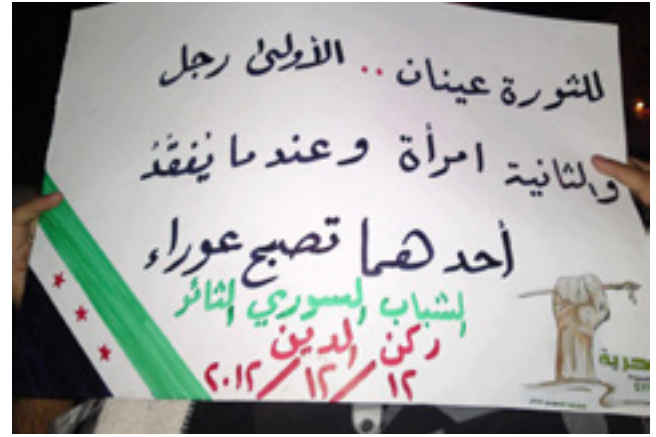 للثورة عينان .. الأولى رجل
والثانية امرأة وعندما يُفقَدُ
أحدهما تصبح عوراء
الشباب السوري الثائر
ركن الدين
١٢/١٢/٢٠١٢
حرية